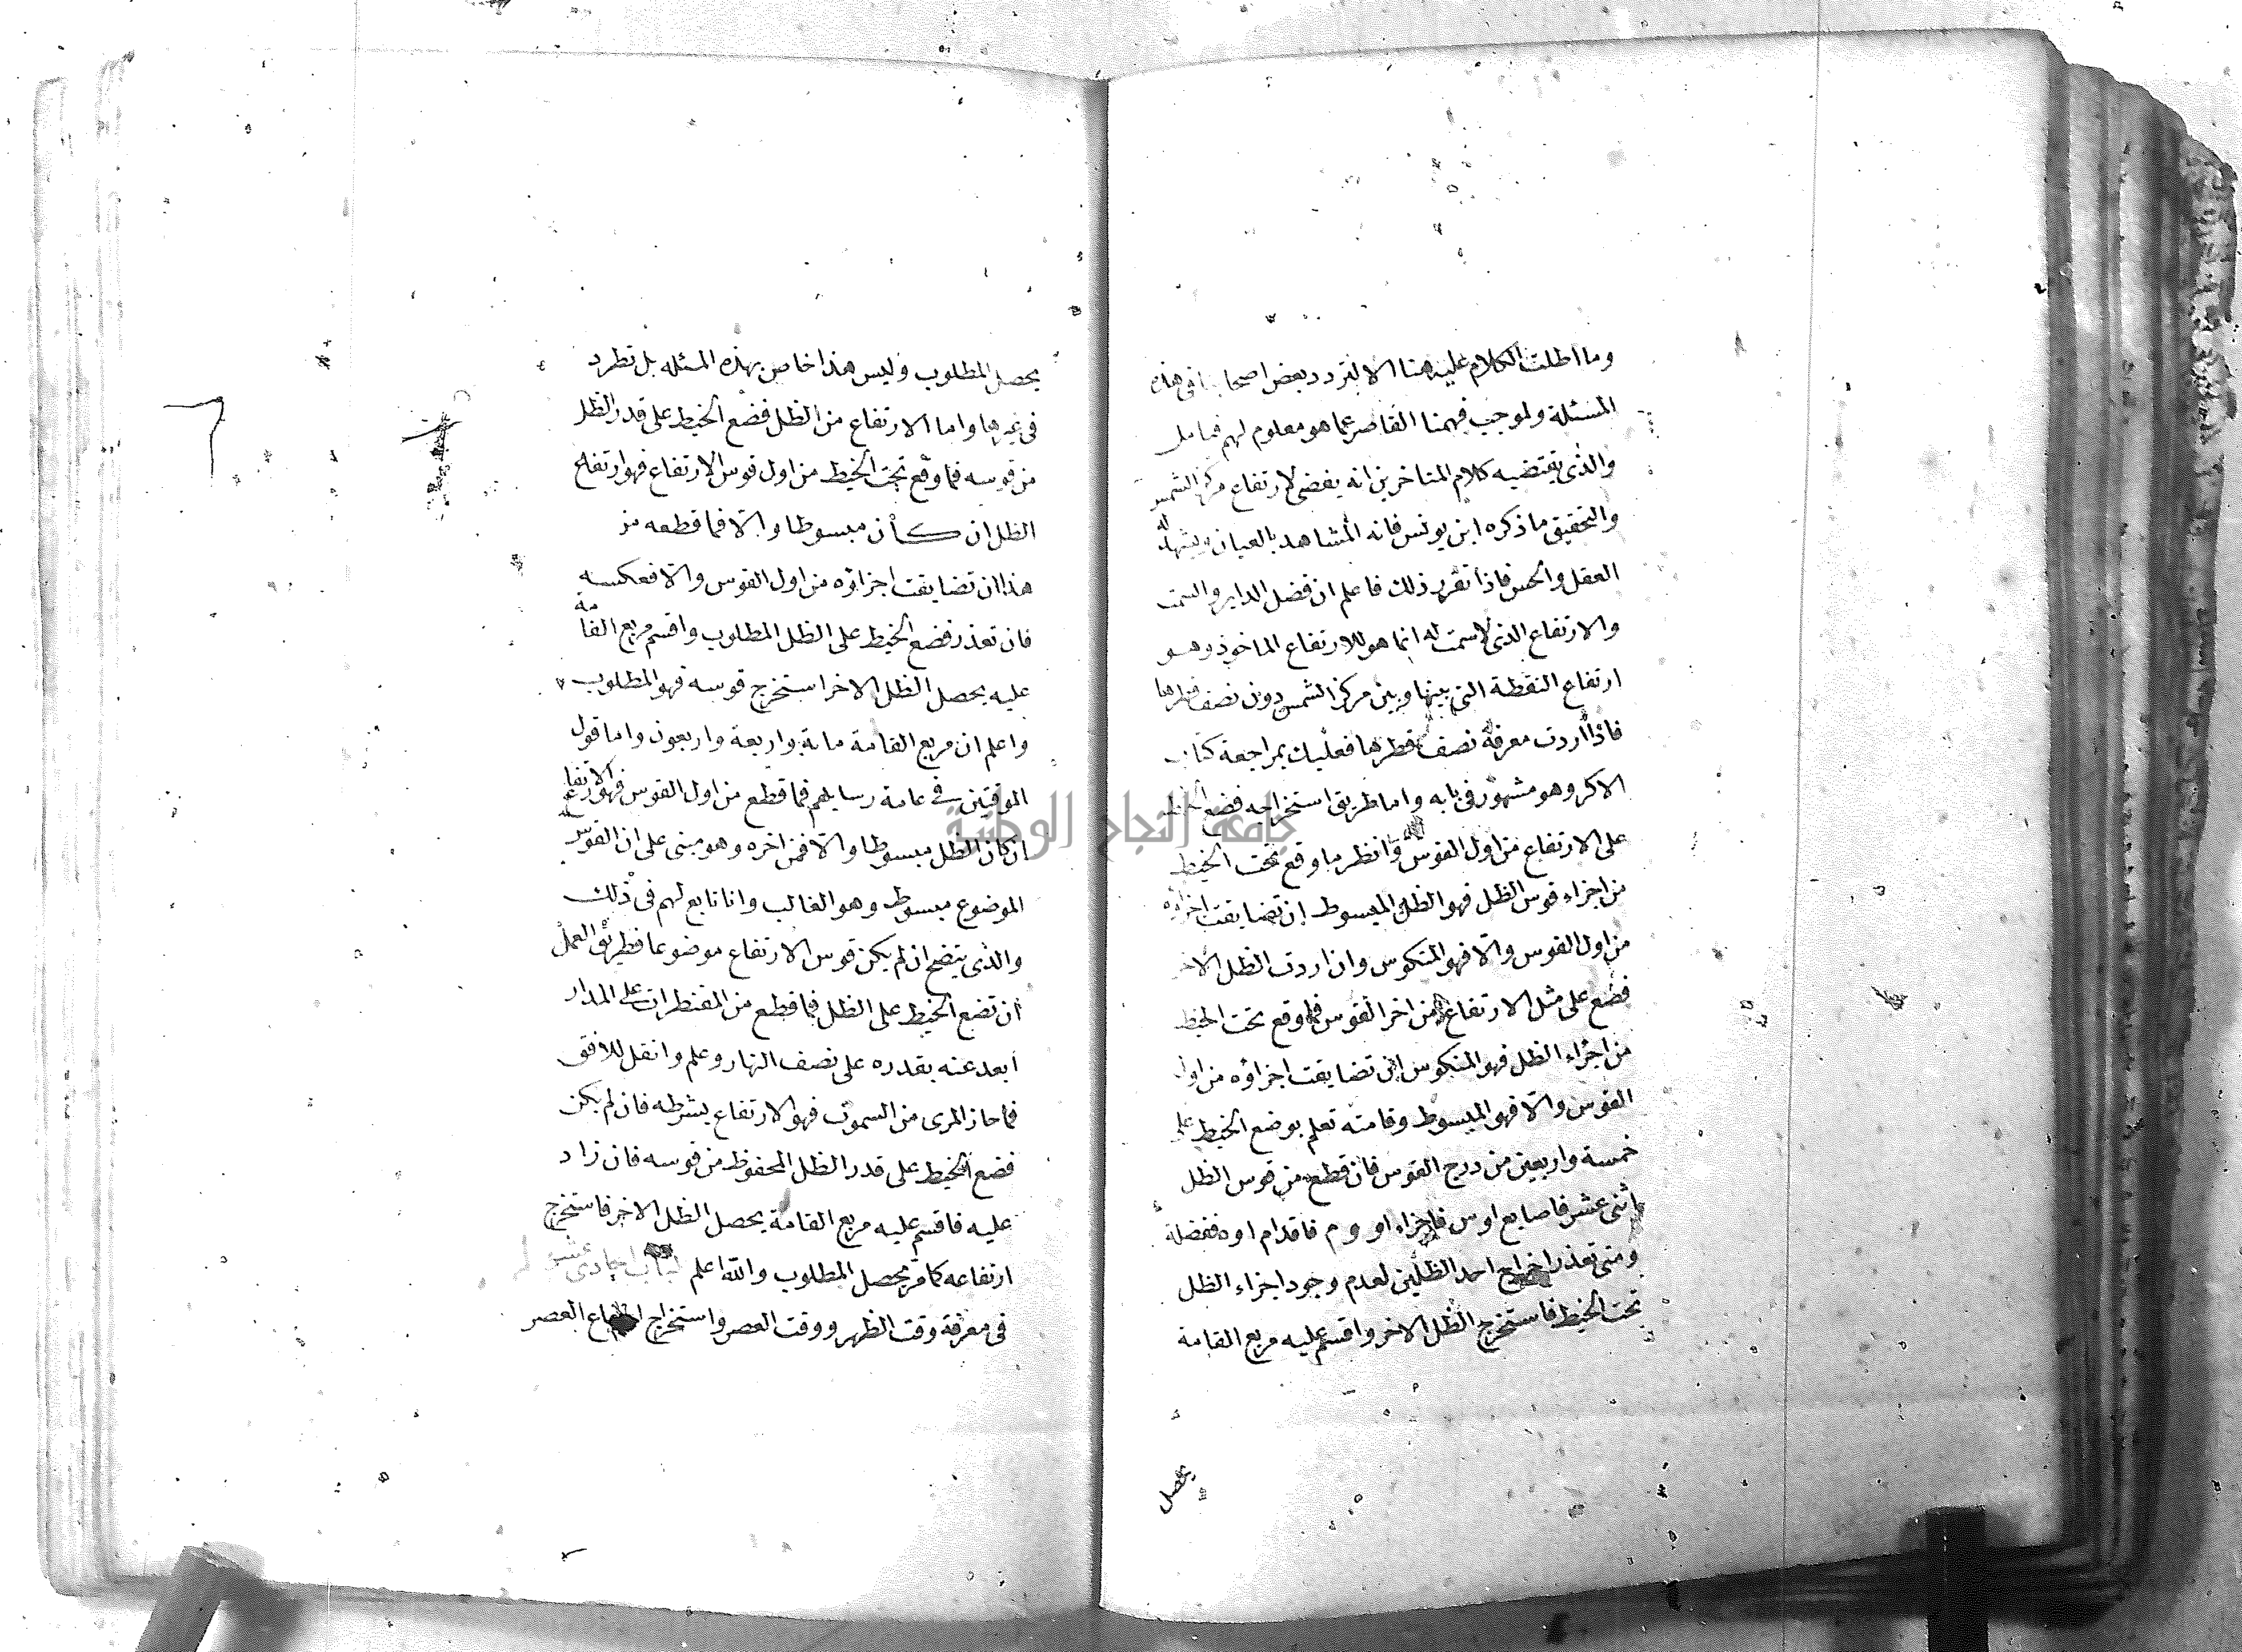 وما اطلت الكلام عليه هنا الا لتردد بعض اصحابنا فى هذه
المسئلة ولموجب فهمنا القاصر عما هو معلوم لهم فتامل
والذى يقتضيه كلام المتاخرين انه يفضى لارتفاع مركز الشمس
والتحقيق ما ذكره ابن يونس فانه المشاهد بالعيان ويشهد له
العقل والحس فاذا تقرر ذلك فاعلم ان فضل الداير والسمت
والارتفاع الذى لا سمت له انما هو للارتفاع الماخوذ وهو
ارتفاع النقطة التى بينها وبين مركز الشمس دون نصف قطرها
فاذا اردت معرفة نصف قطرها فعليك بمراجعة كتاب
الاكر وهو مشهور فى بابه واما طريق استخراجه فضع الخيط
على الارتفاع من اول القوس وانظر ما وقع تحت الخيط
من اجزاء قوس الظل فهو الظل المبسوط ان تضايقت اجزاؤه
من اول القوس والا فهو المنكوس وان اردت الظل الاخر
فضع على مثل الارتفاع من اخر القوس فما وقع تحت الخيط
من اجزاء الظل فهو المنكوس ان تضايقت اجزاؤه من اول
القوس والا فهو المبسوط وقامته تعلم بوضع الخيط على
خمسة واربعين من درج القوس فان قطع من قوس الظل
اثنى عشر فاصابع او س فاجزاء او و م فاقدام او ه ففضلة
ومتى تعذر اخراج احد الظلين لعدم وجود اجزاء الظل
تحت الخيط فاستخرج الظل الاخر واقسم عليه مربع القامة
يحصل
يحصل المطلوب وليس هذا خاص بهذه المسئله بل تطرد
فى غيرها واما الارتفاع من الظل فضع الخيط على قدر الظل
من قوسه فما وقع تحت الخيط من اول قوس الارتفاع فهو ارتفاع
الظل ان كان مبسوطا والا فما قطعه من
هذا ان تضايقت اجزاؤه من اول القوس والا فعكسه
فان تعذر فضع الخيط على الظل المطلوب واقسم مربع القامة
عليه يحصل الظل الاخر استخرج قوسه فهو المطلوب
واعلم ان مربع القامة ماية واربعة واربعون واما قول
الموقتين فى عامة رسايلهم فما قطع من اول القوس فهو الارتفاع
ان كان الظل مبسوطا والا فمن اخره وهو مبنى على ان القوس
الموضوع مبسوط وهو الغالب وانا تابع لهم فى ذلك
والذى يتضح ان لم يكن قوس الارتفاع موضوعا فطريق العمل
ان تضع الخيط على الظل فما قطع من المقنطرات على المدار
ابعد عنه بقدره على نصف النهار وعلم وانقل للافق
فما حاز المرى من السموت فهو الارتفاع بشرطه فان لم يكن
فضع الخيط على قدر الظل المحفوظ من قوسه فان زاد
عليه فاقسم عليه مربع القامة يحصل الظل الاخر فاستخرج
ارتفاعه كما مر يحصل المطلوب والله اعلم الباب الحادى عشر
فى معرفة وقت الظهر ووقت العصر واستخراج ارتفاع العصر
جامعة النجاح الوطنية